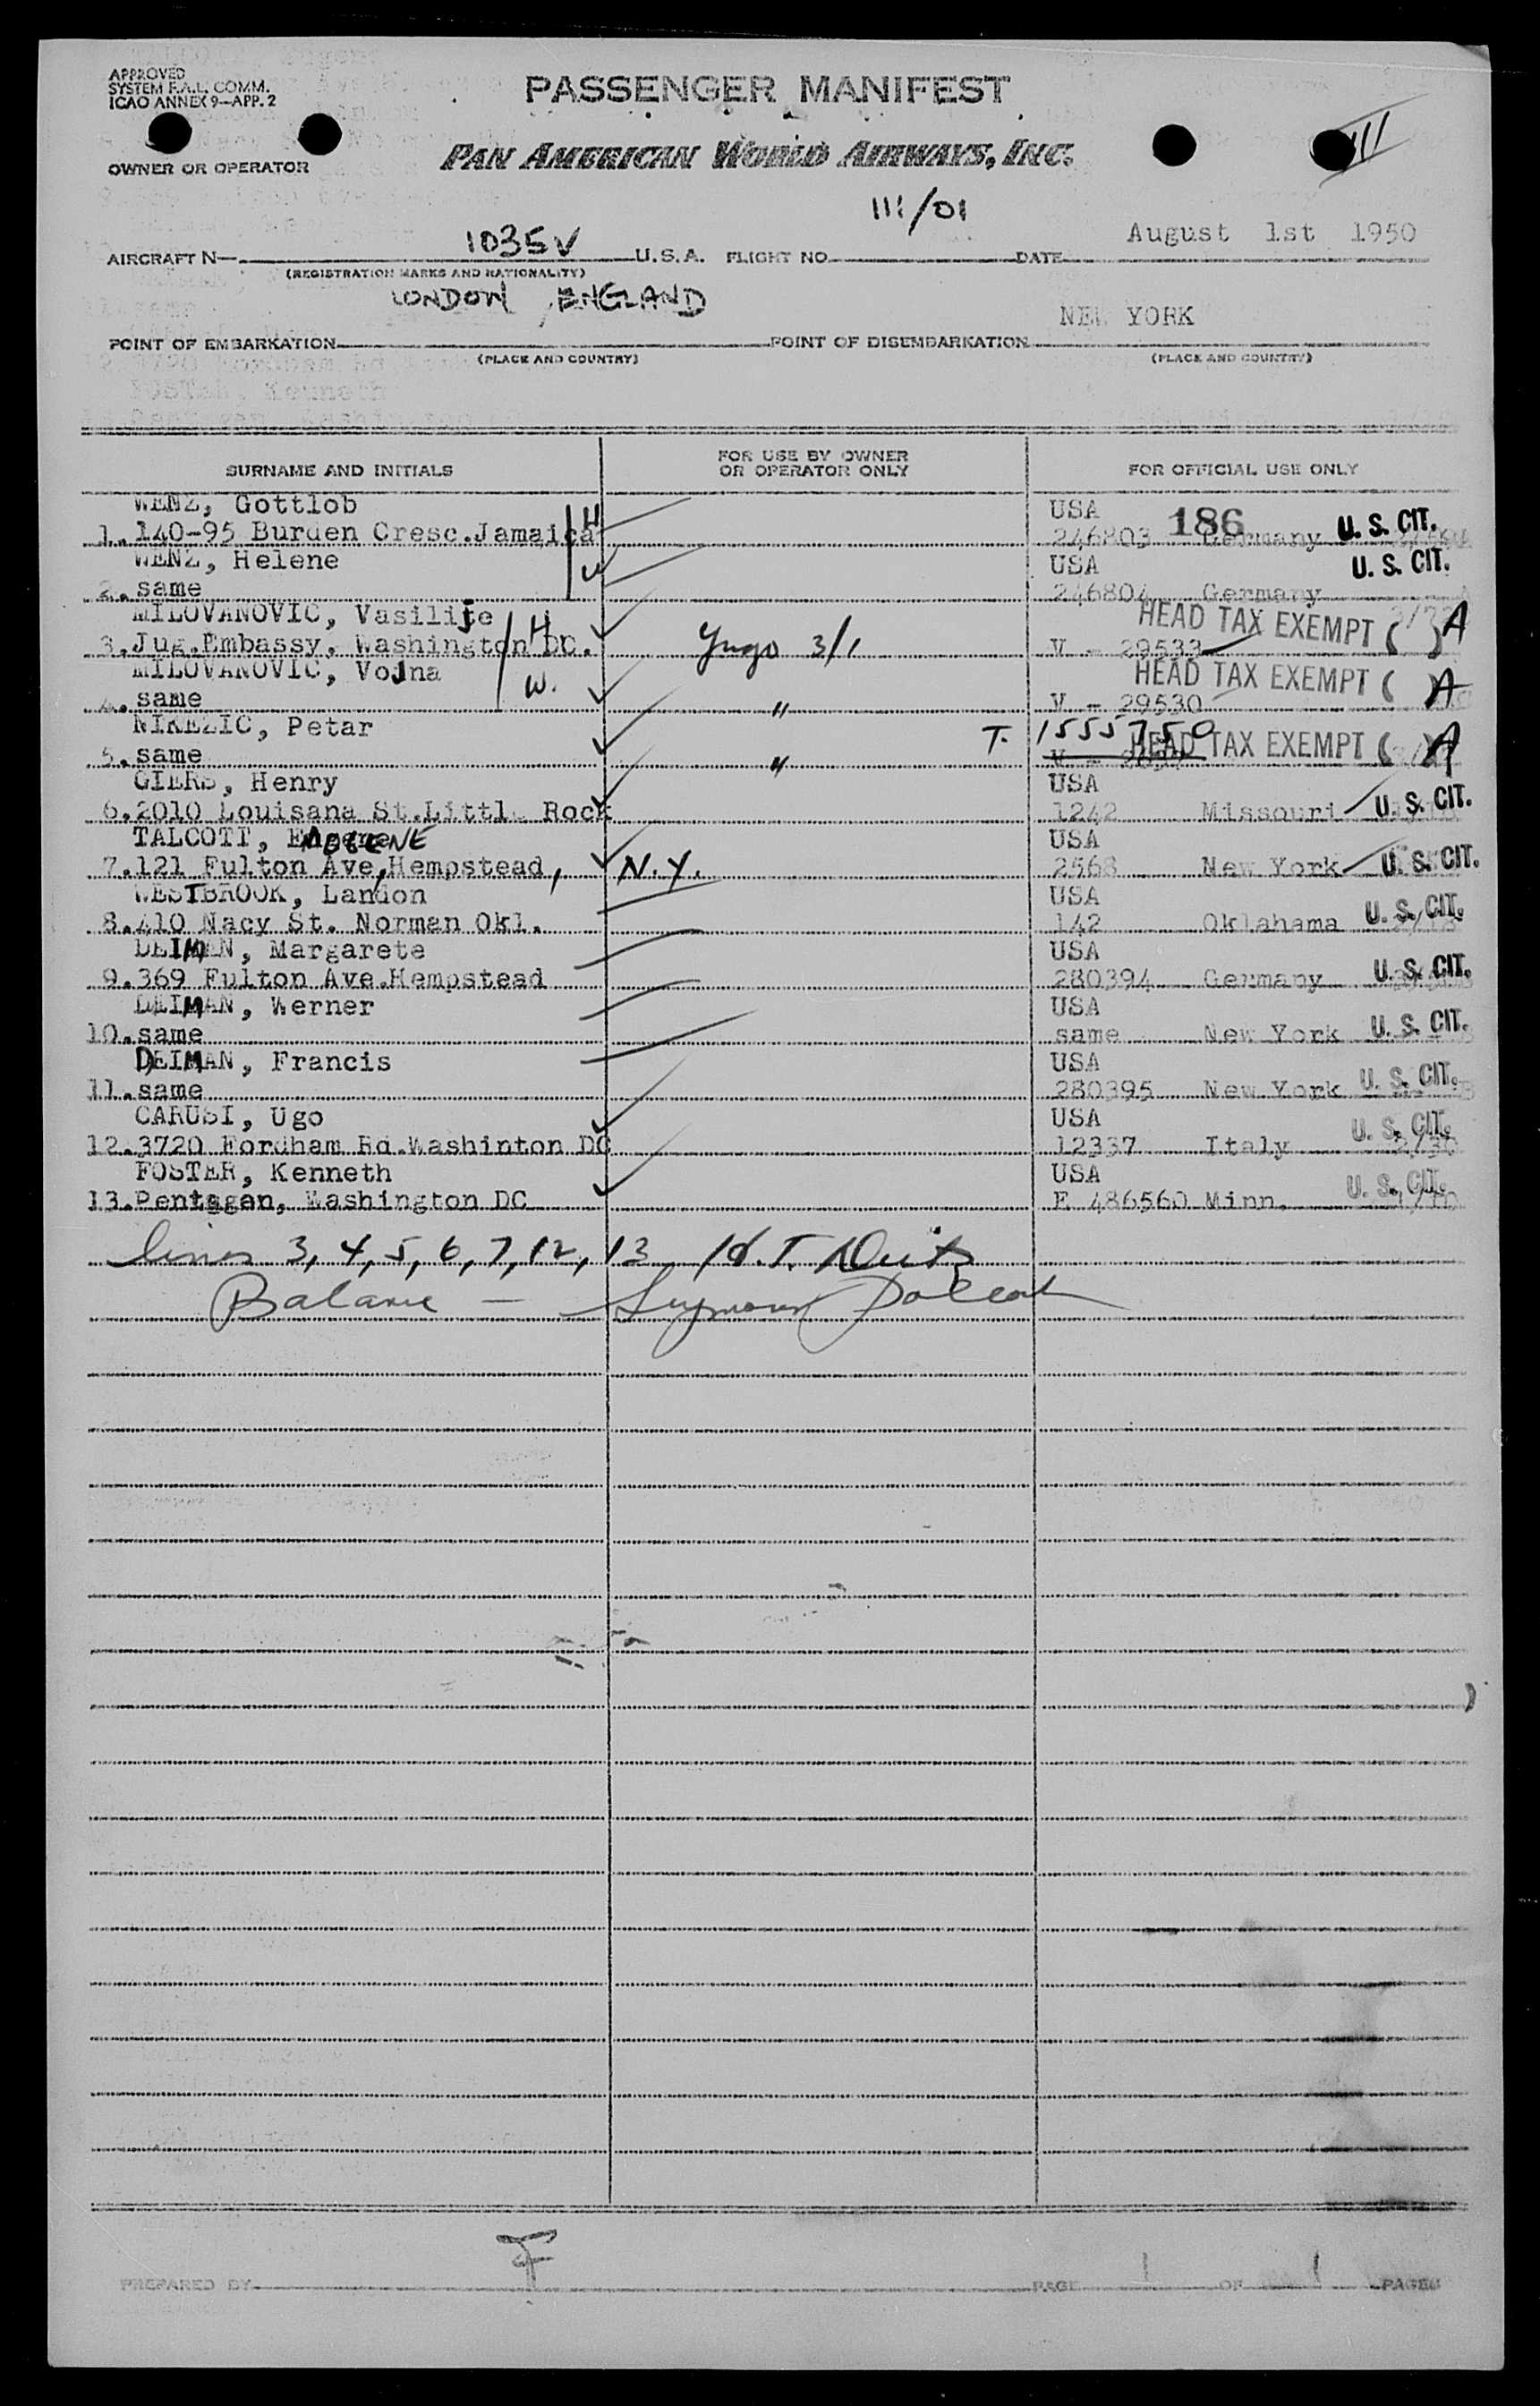 APPROVED
SYSTEM F.A.L. COMM.
ICAO ANNEX 9—APP. 2
PASSENGER MANIFEST
III
OWNER OR OPERATOR
PAN AMERICAN WORLD AIRWAYS, INC.
111/01
AIRCRAFT N— 1035V U.S.A. FLIGHT NO. DATE August 1st 1950
(REGISTRATION MARKS AND NATIONALITY)
LONDON, ENGLAND
NEW YORK
POINT OF EMBARKATION POINT OF DISEMBARKATION
(PLACE AND COUNTRY) (PLACE AND COUNTRY)
SURNAME AND INITIALS FOR USE BY OWNER OR OPERATOR ONLY FOR OFFICIAL USE ONLY
WENZ, Gottlob H USA
1. 140-95 Burden Cresc.Jamaica 246803 186 Germany U. S. CIT.
WENZ, Helene W USA
2. same 246804 Germany U. S. CIT.
MILOVANOVIC, Vasilije H. HEAD TAX EXEMPT ( ) A
3. Jug.Embassy, Washington DC. Yugo 3/1 V - 29533
MILOVANOVIC, Vojna W. HEAD TAX EXEMPT ( ) A
4. same " V - 29530
NIKEZIC, Petar T. 1555750
5. same " V - HEAD TAX EXEMPT ( ) A
GIERS, Henry USA
6. 2010 Louisana St.Littl. Rock 1242 Missouri U. S. CIT.
TALCOTT, ADELENE USA
7. 121 Fulton Ave, Hempstead, N.Y. 2568 New York U. S. CIT.
WESTBROOK, Landon USA
8. 410 Nacy St. Norman Okl. 142 Oklahama U. S. CIT.
DEIMAN, Margarete USA
9. 369 Fulton Ave.Hempstead 280394 Germany U. S. CIT.
DEIMAN, Werner USA
10. same same New York U. S. CIT.
DEIMAN, Francis USA
11. same 280395 New York U. S. CIT.
CARUSI, Ugo USA
12. 3720 Fordham Rd.Washinton DC 12337 Italy U. S. CIT.
FOSTER, Kenneth USA
13. Pentagan, Washington DC E 486560 Minn. U. S. CIT.
lines 3, 4, 5, 6, 7, 12, 13
Balance — Seymour
PREPARED BY PAGE 1 OF 1 PAGES